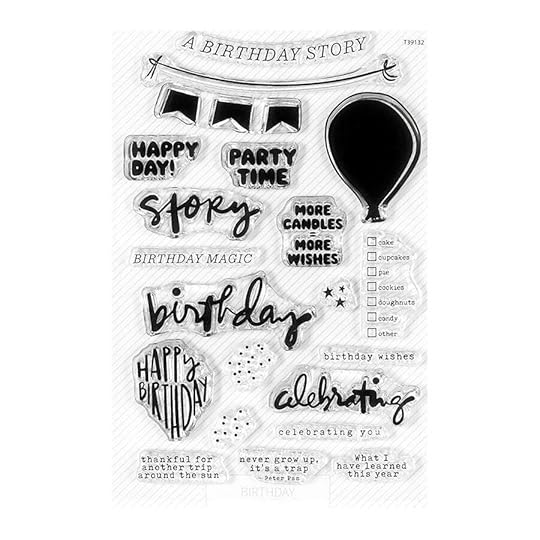 A BIRTHDAY STORY
T39132
HAPPY
DAY!
PARTY
TIME
story
MORE
CANDLES
=
MORE
WISHES
cake
cupcakes
pie
cookies
doughnuts
candy
other
BIRTHDAY MAGIC
birthday
birthday wishes
HAPPY
BIRTHDAY
celebrating
celebrating you
thankful for
another trip
around the sun
never grow up,
it's a trap
- Peter Pan
What I
have learned
this year
BIRTHDAY